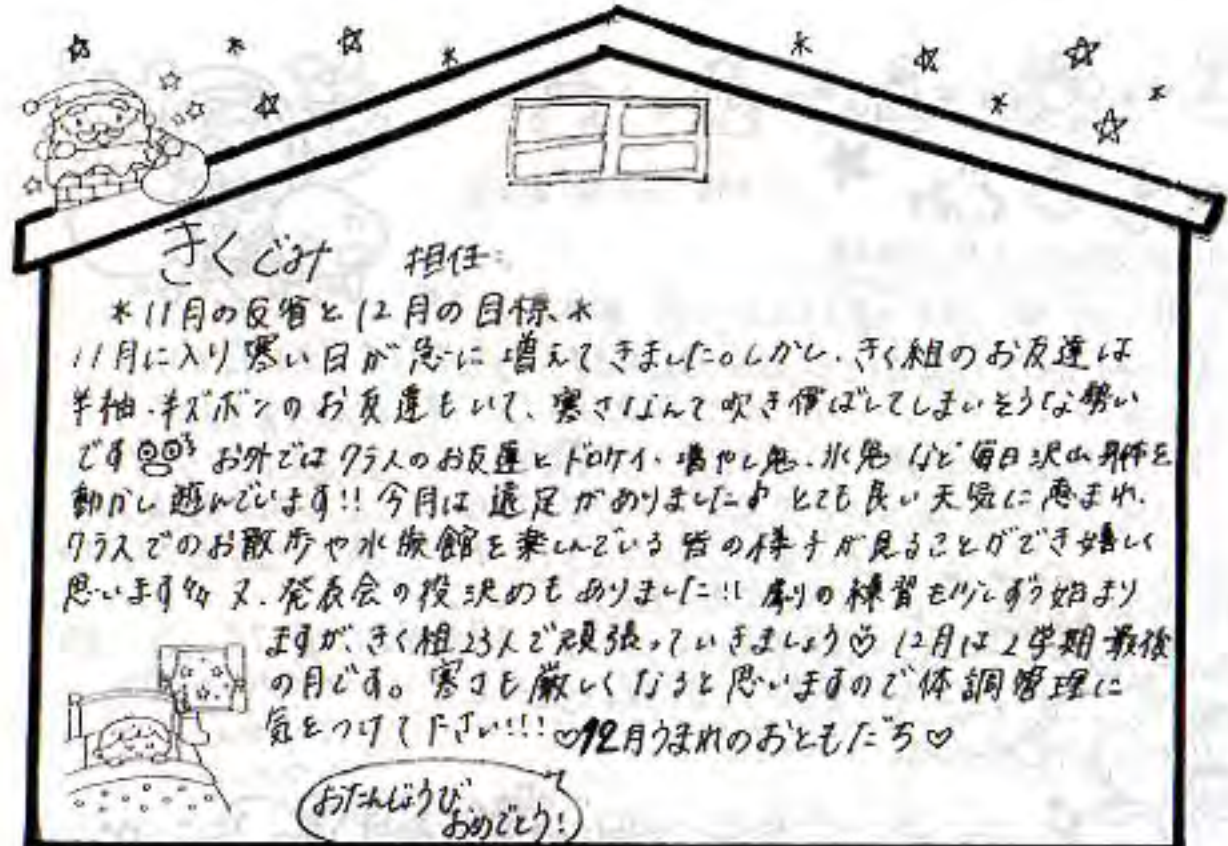 きくぐみ 担任:
*11月の反省と12月の目標*
11月に入り寒い日が急に増えてきました。しかし、きく組のお友達は
半袖・半ズボンのお友達もいて、寒さなんて吹き飛ばしてしまいそうな勢い
です お外ではクラスのお友達とドロケイ、増やし鬼、氷鬼など毎日沢山身体を
動かし遊んでいます!!今月は遠足がありました♪とても良い天気に恵まれ、
クラスでのお散歩や水族館を楽しんでいる皆の様子が見ることができ嬉しく
思います 又、発表会の役決めもありました!!劇の練習も少しずつ始まり
ますが、きく組23人で頑張っていきましょう♡12月は2学期最後
の月です。寒さも厳しくなると思いますので体調管理に
気をつけて下さい!!!♡12月うまれのおともだち♡
おたんじょうび
おめでとう!